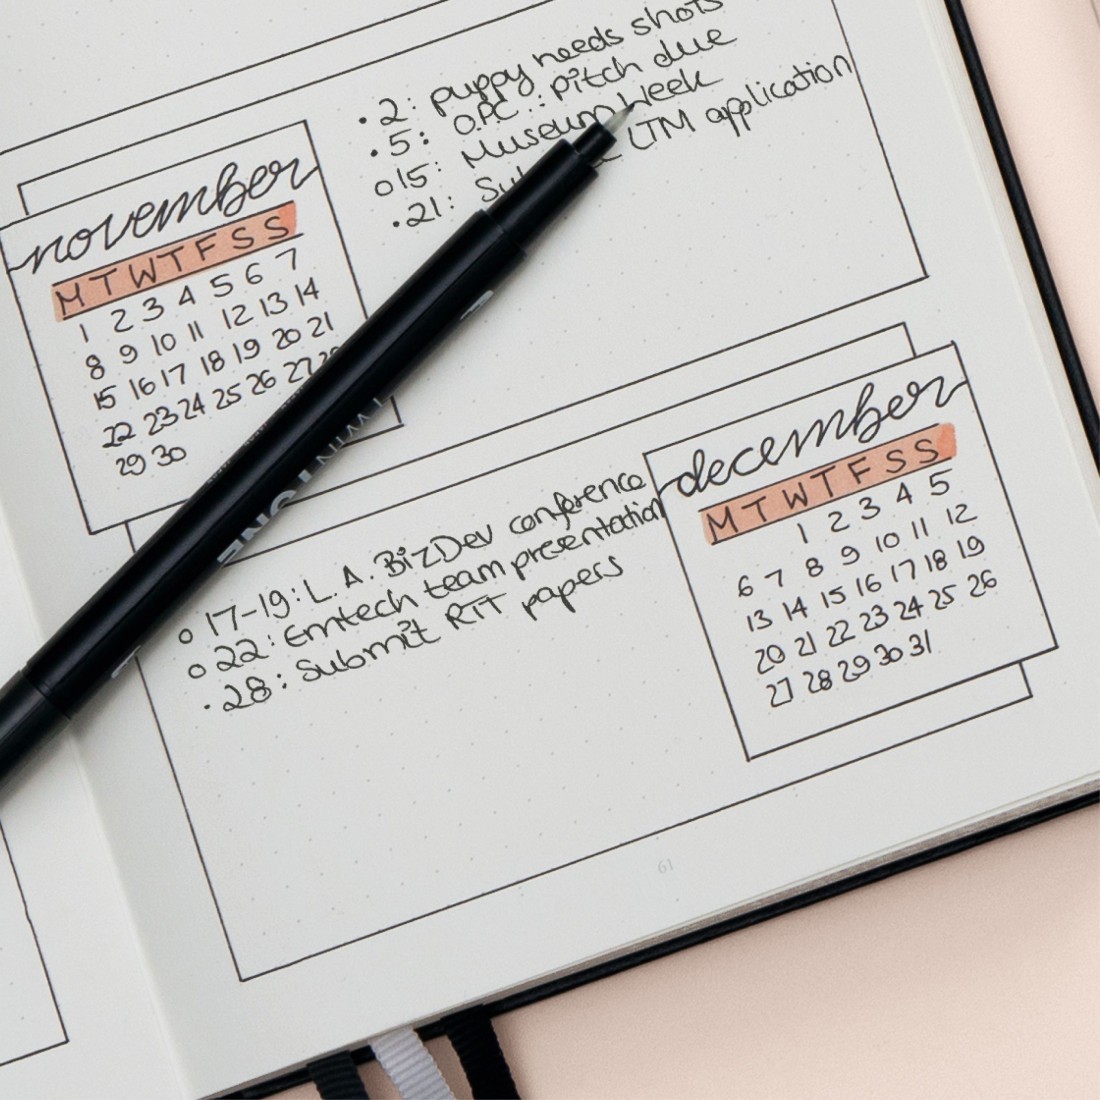 . 2: puppy needs shots
. 5: O.P.C.: pitch due
o 15: Museum Week
. 21: LTM application
november
M T W T F S S
1 2 3 4 5 6 7
8 9 10 11 12 13 14
15 16 17 18 19 20 21
22 23 24 25 26 27 28
29 30
december
M T W T F S S
1 2 3 4 5
6 7 8 9 10 11 12
13 14 15 16 17 18 19
20 21 22 23 24 25 26
27 28 29 30 31
o 17-19: L.A. BizDev conference
o 22: Emtech team presentation
. 28: Submit RTT papers
61